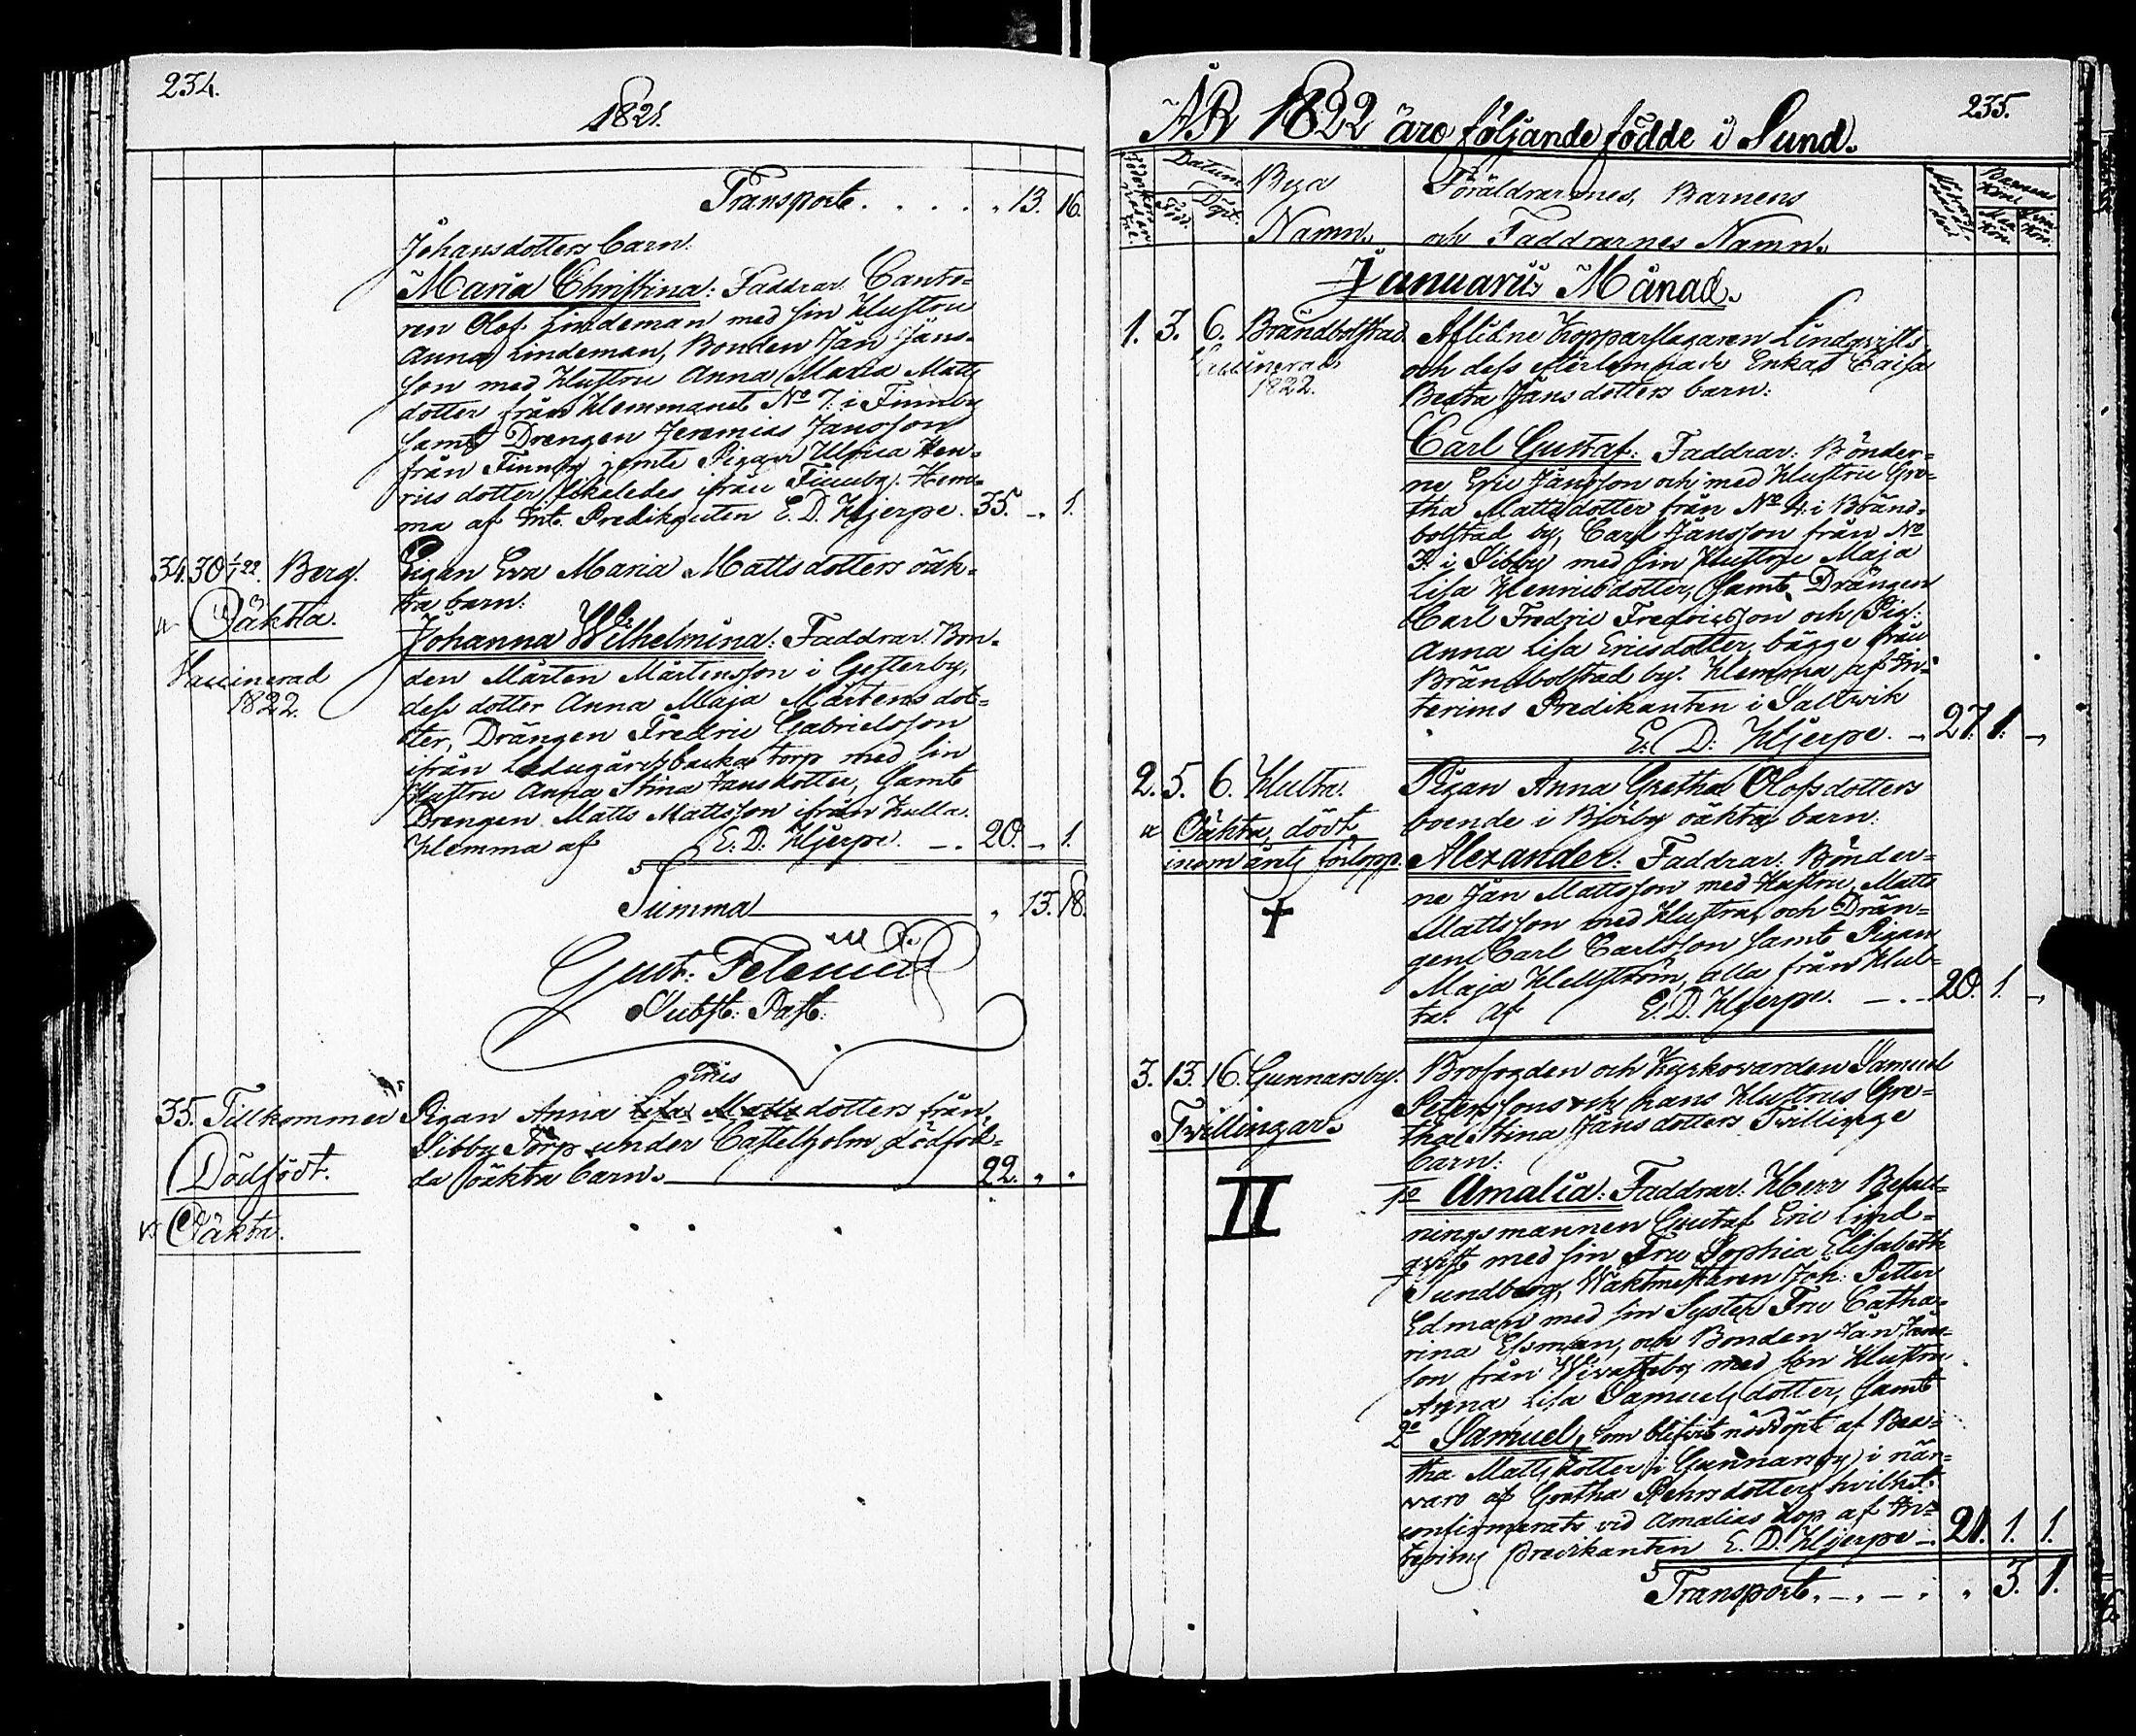 234.
1821.
Transport. . . . . „ 13. 16.
Johansdotters barn:
Maria Christina: Faddrar: Canto=
ren Olof Lindeman med sin Hustru
Anna Lindeman, Bonden Jan Jans-
son med Hustru Anna Maria Matts
dotter från Hemmanet No 7. i Finnby
samt Drengen Jeremias Jansson
från Finnby jemte Pigan Ulrica Hen-
rics dotter likaledes ifrån Finnby. Hem-
ma af Int. Predikanten E. D. Hjerpe. 35. „ 1.
34. 30 1/1 22. Berg. Pigan Eva Maria Matts dotters oäk-
Oäkta. ta barn:
Johanna Wilhelmina: Faddrar: Bon-
Vaccinerad den Mårten Mårtensson i Gesterby,
1822. dess dotter Anna Maja Mårtens dot=
ter, Drängen Fredric Gabrielsson
ifrån Ladugårdsbacka torp med sin
Hustru Anna Stina Jansdotter, samt
Drengen Matts Mattsson ifrån Kulla.
Hemma af E. D. Hjerpe. —. 20. „ 1.
Summa „ 13. 18.
Gust:
Subst: Past:
Pigan Anna Lisa Matts dotters från
35. Tillkommer
Sibby Torp under Castelholm dödföd=
Dödfödt. da oäkta barn. 22. „ „
Oäkta.
235.
ÅR 1822 äro följande födde i Sund.
Datum Bya Föräldrarnes, Barnens Barnens Kön
Född. Döpt. Namn. och Faddrarnes Namn. Man Kön. Qvin Kön.
Januarii Månad.
1. 3. 6. Brändbolstad. Aflidne Kopparslagaren Lindqvists
Vaccinerad och dess efterlemnade Enkas Caisa
1822. Beata Jans dotters barn:
Carl Gustaf: Faddrar: Bönder=
ne Eric Jansson och med Hustru Gre-
tha Mattsdotter från No 4. i Bränd-
bolstad by, Carl Jansson från No
3. i Sibby med sin Hustru Maja
Lisa Henricsdotter, samt Drängen
Carl Fredric Fredricsson och Pig:
Anna Lisa Ericsdotter, bägge från
Brändbolstad by. Hemma af In-
terims Predikanten i Saltvik
E. D: Hjerpe. — 27. 1. „
2. 5. 6. Hulta. Pigan Anna Gretha Olofsdotters
Oäkta, dödt boende i Björby oäkta barn:
inom årets förlopp. Alexander: Faddrar: Bönder=
ne Jan Mattsson med Hustru, Matts
Mattsson med Hustru, och Drän=
gen Carl Carlsson samt Pigan
Maja Hellström, alla från Hul-
ta. Af E. D. Hjerpe. —. 20. 1. „
3. 13. 16. Gunnarsby. Brofogden och Kyrkovärden Samuel
Peterssons och hans Hustrus Gre-
Tvillingar. tha Stina Jans dotters Tvillinge
barn:
II 1o Amalia: Faddrar: Herr Befall-
ningsmannen Gustaf Eric Lind=
qvist med sin Fru Sophia Elisabeth
Sundberg, Waktmästaren Joh: Petter
Edman med sin Syster Fru Catha-
rina Elsman, och Bonden Jan Jans-
son från Wivastby med sin Hustru
Anna Lisa Samuelsdotter, samt
2o Samuel, som blifvit nöddöpt af Bea-
tha Mattsdotter i Gunnarsby, i när-
varo af Gretha Pehrsdotter, hvilket
confirmerats vid Amalias dop af In-
terims Predikanten E. D. Hjerpe —. 21. 1. 1.
Transport. —. — . „ 3. 1.